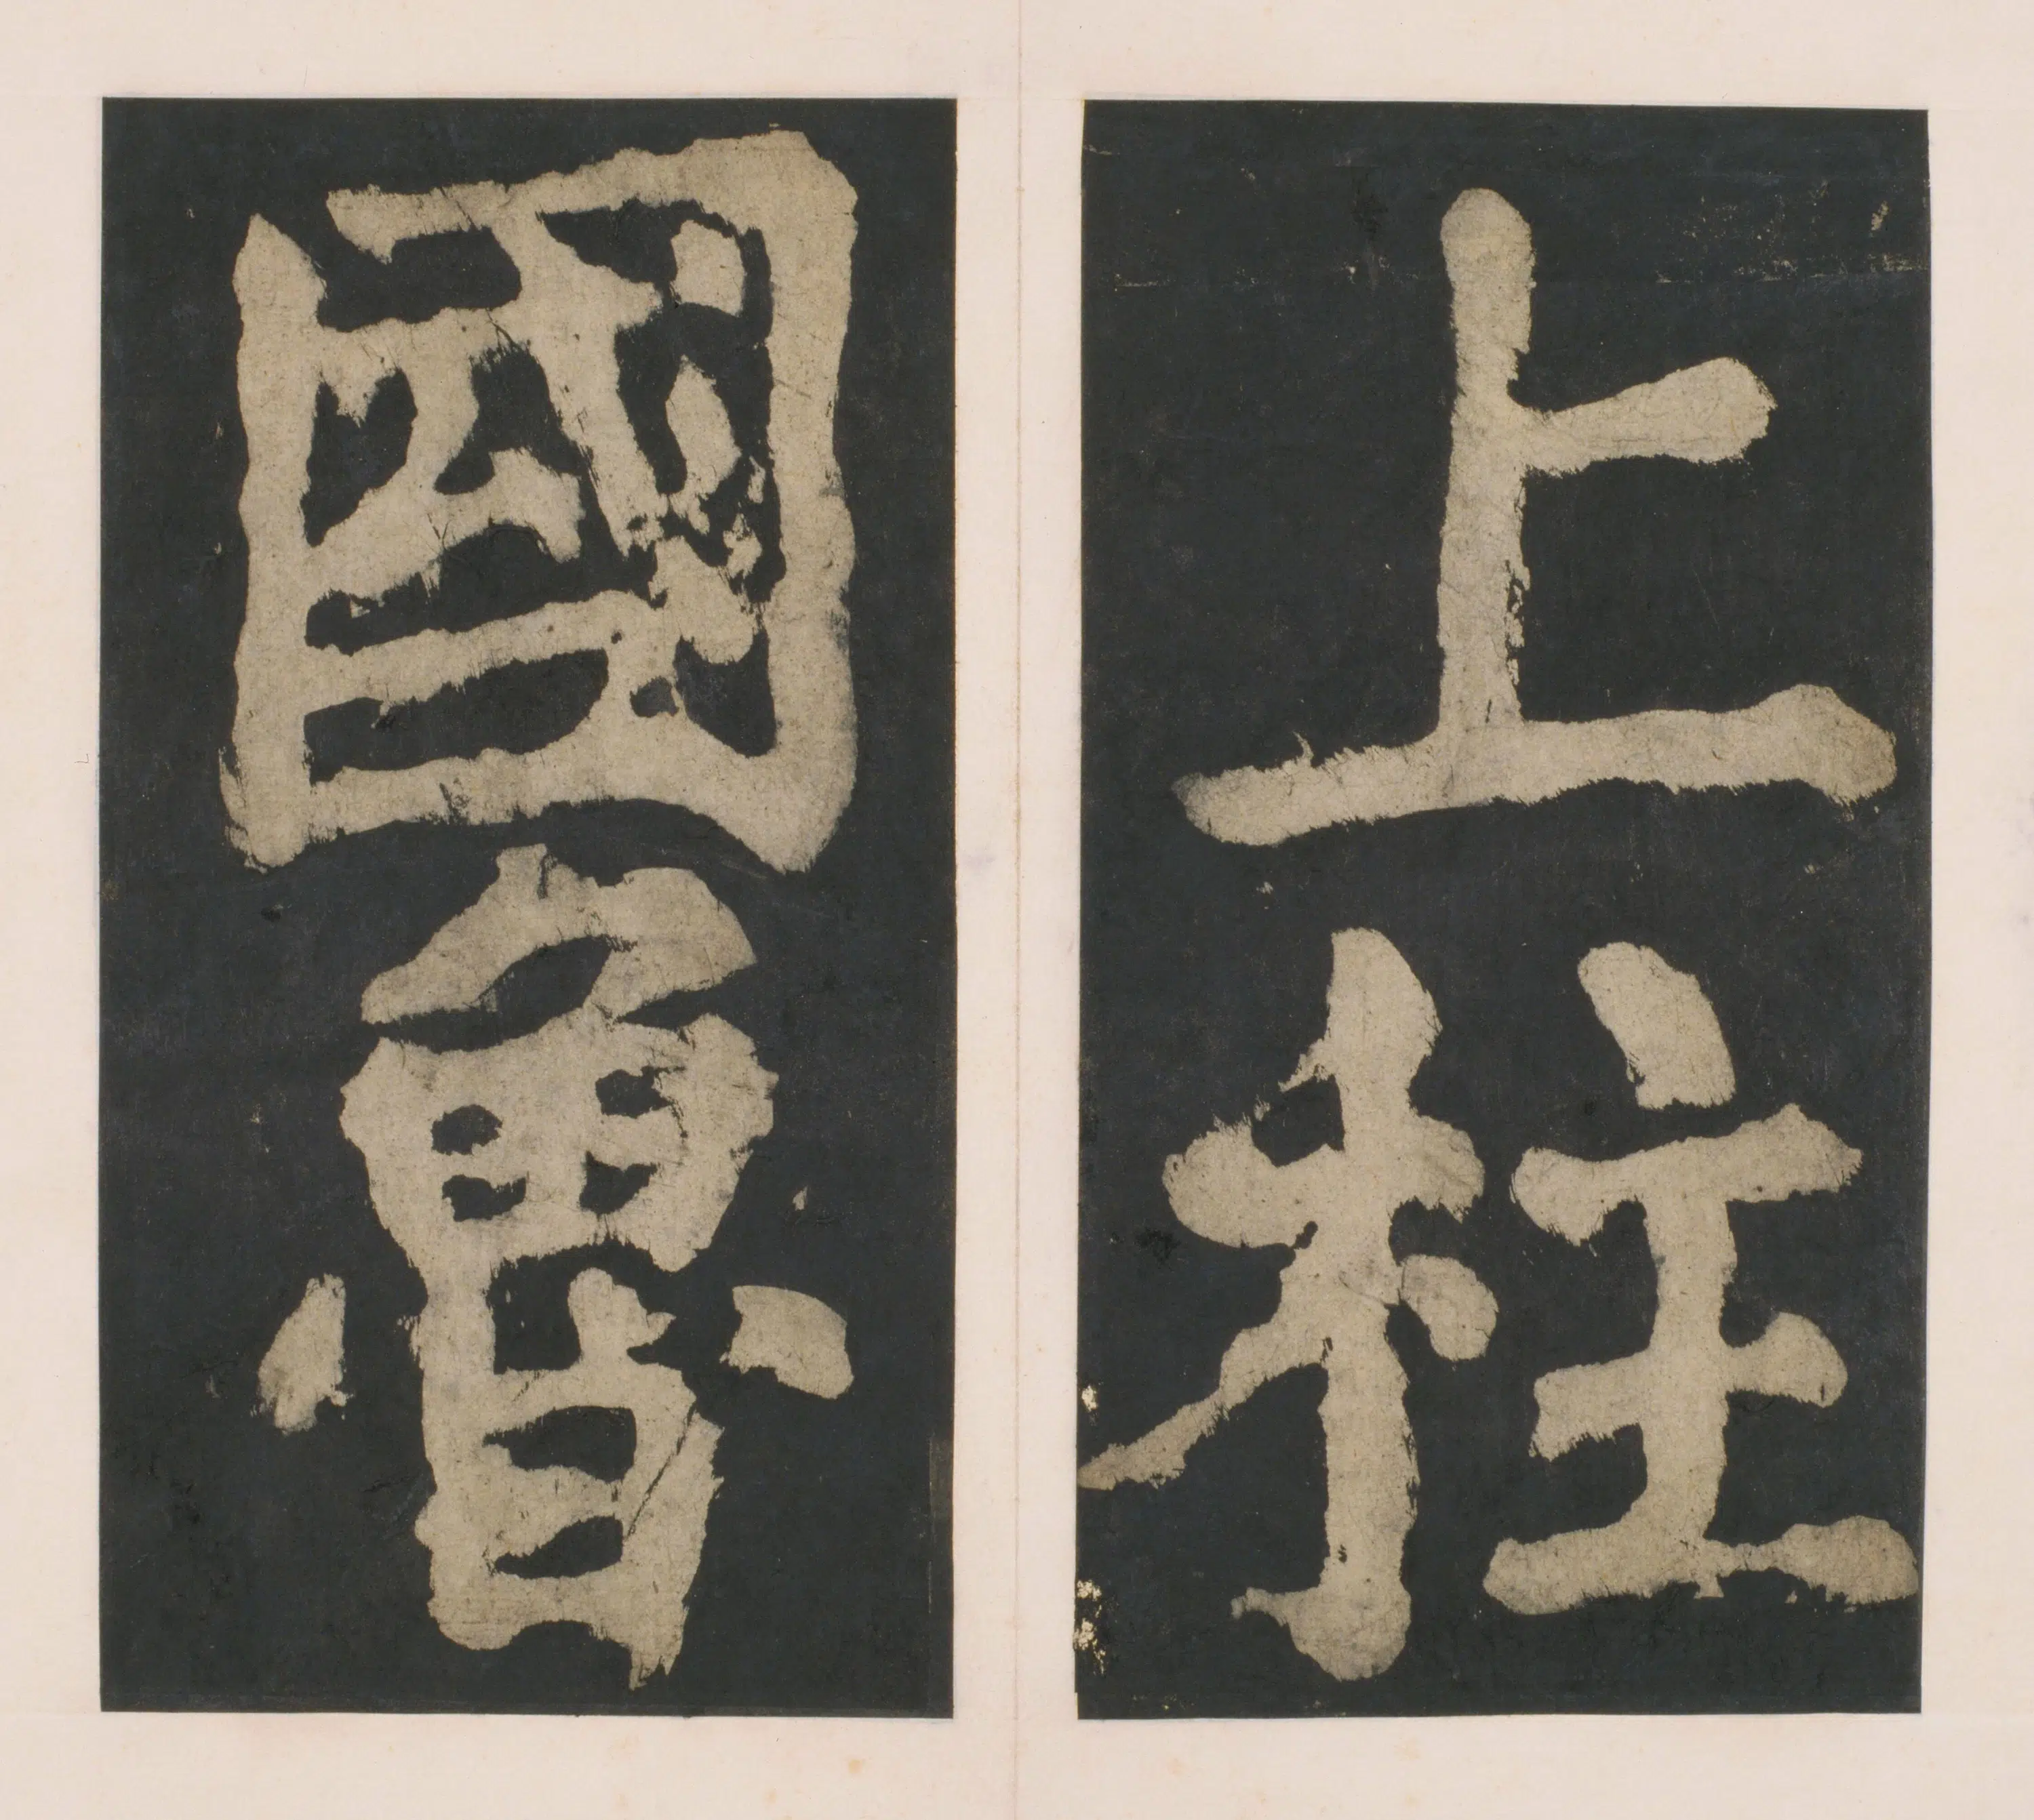 上柱
國魯